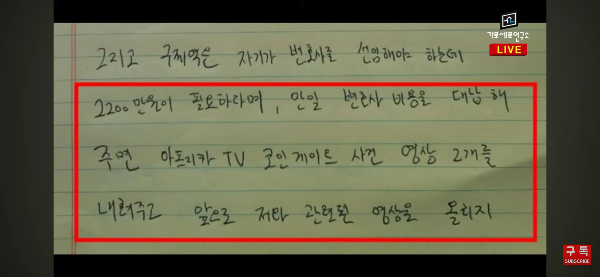 가로세로연구소
LIVE
그리고 구제역은 자기가 변호사를 선임해야 하는데
2200만원이 필요하다며, 만일 변호사 비용을 대납 해
주면 아프리카TV 코인게이트 사건 영상 2개를
내려주고 앞으로 저와 관련된 영상을 올리지
구독
SUBSCRIBE